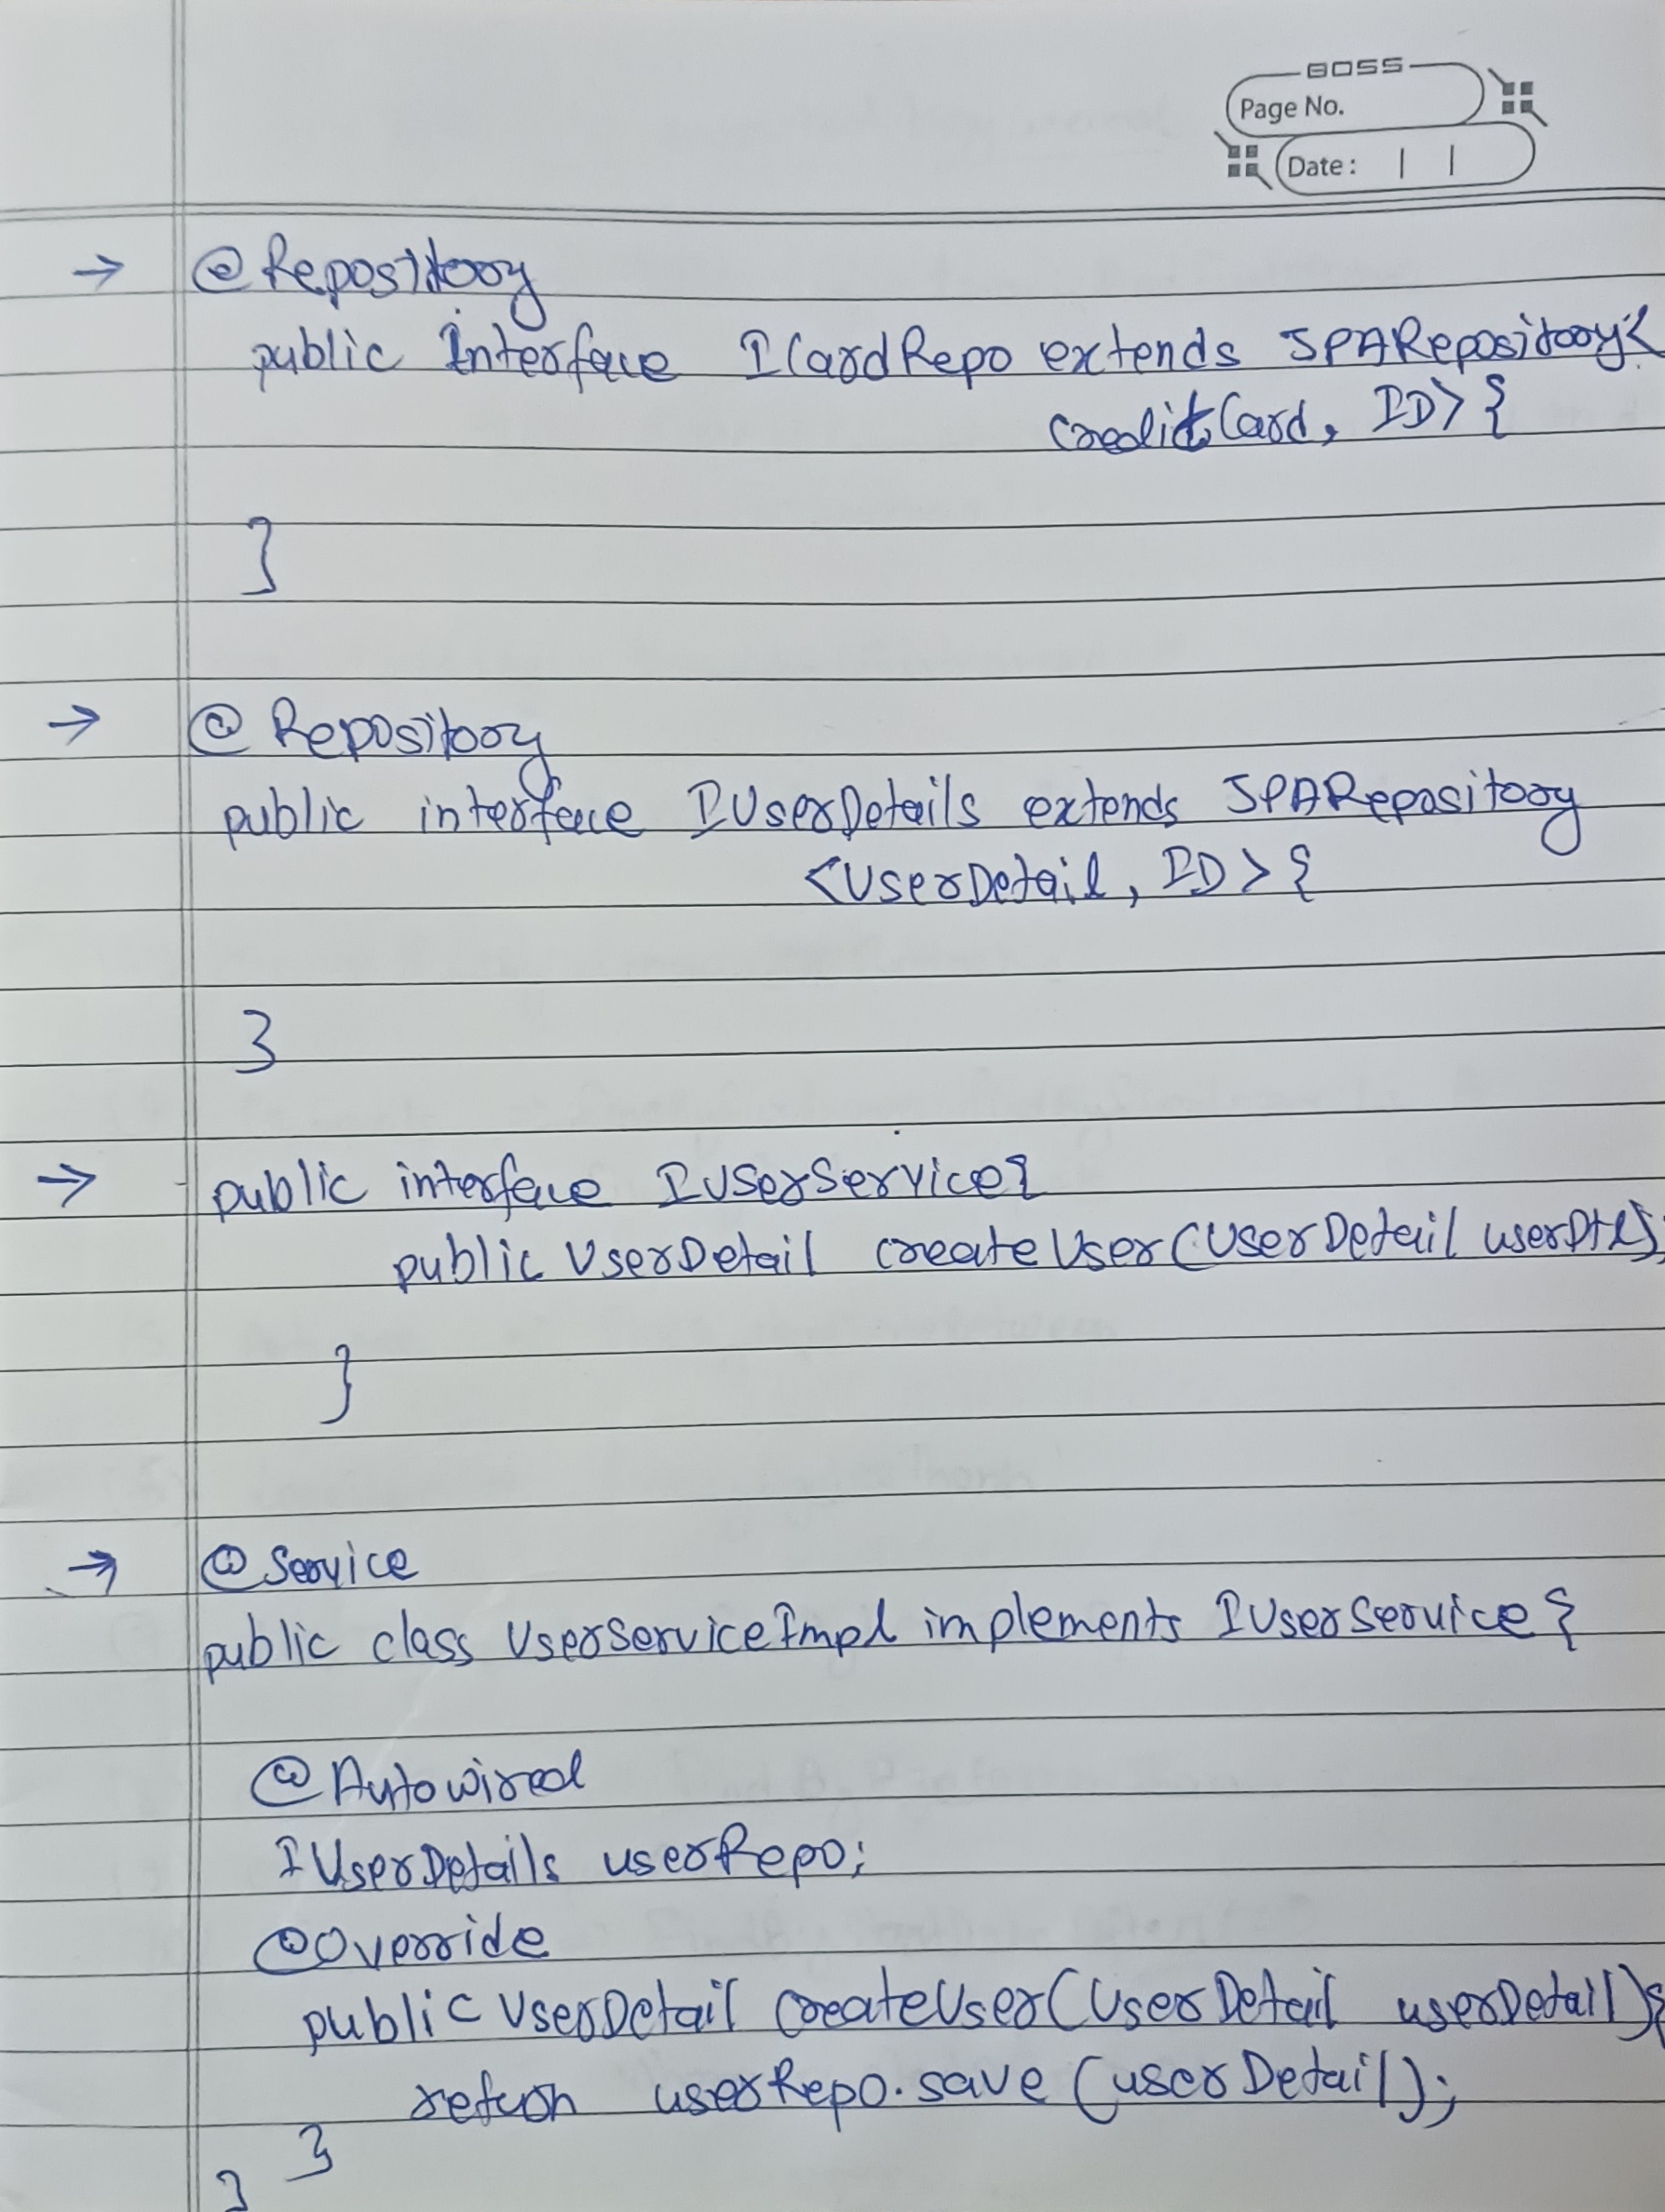 BOSS
Page No.
Date :
→ @Repository
public Interface ICardRepo extends JPARepository<
CreditCard, ID>{
}
→ @Repository
public interface IUserDetails extends JPARepository
<UserDetail, ID>{
}
→ public interface IUserService{
public UserDetail createUser(UserDetail userDtl);
}
→ @Service
public class UserServiceImpl implements IUserService{
@Autowired
IUserDetails userRepo;
@Override
public UserDetail createUser(UserDetail userDetail){
return userRepo.save(userDetail);
}
}